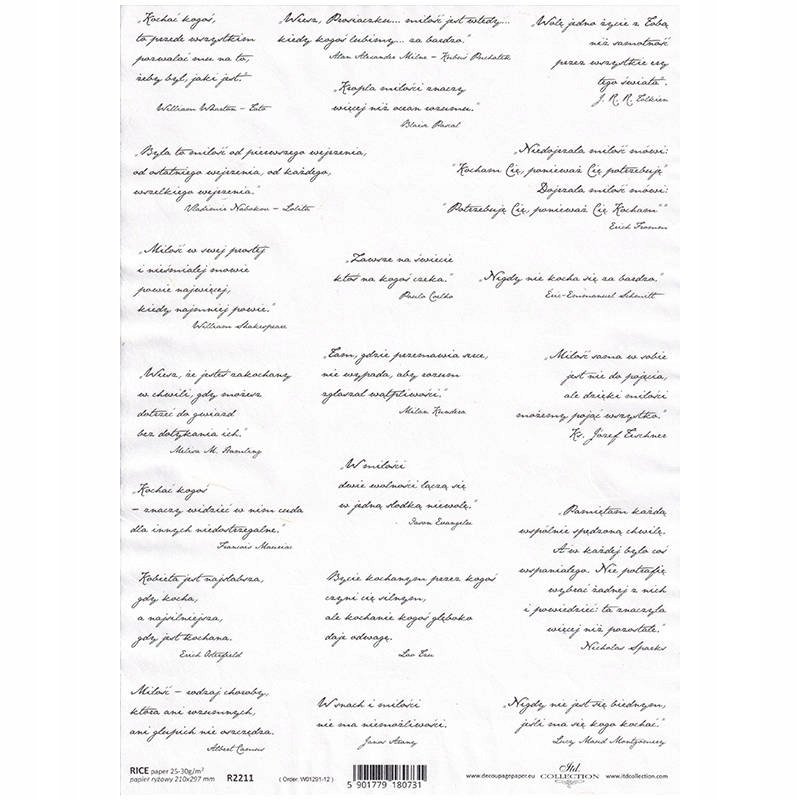 „Kochać kogoś,
to przede wszystkim
pozwalać mu na to,
żeby był, jaki jest."
William Wharton – Tato
„Wiesz, Prosiaczku... miłość jest wtedy...
kiedy kogoś lubimy... za bardzo."
Alan Alexander Milne – Kubuś Puchatek
„Kropla miłości znaczy
więcej niż ocean rozumu."
Blaise Pascal
„Wolę jedno życie z Tobą
niż samotność
przez wszystkie ery
tego świata".
J. R. R. Tolkien
„Była to miłość od pierwszego wejrzenia,
od ostatniego wejrzenia, od każdego,
wszelkiego wejrzenia."
Vladimir Nabokov – Lolita
„Niedojrzała miłość mówi:
"Kocham Cię, ponieważ Cię potrzebuję"
Dojrzała miłość mówi:
"Potrzebuję Cię, ponieważ Cię Kocham""
Erich Fromm
„Miłość w swej prostej
i nieśmiałej mowie
powie najwięcej,
kiedy najmniej powie."
William Shakespeare
„Zawsze na świecie
ktoś na kogoś czeka."
Paulo Coelho
„Nigdy nie kocha się za bardzo."
Eric-Emmanuel Schmitt
„Wiesz, że jesteś zakochany
w chwili, gdy możesz
dotrzeć do gwiazd
bez dotykania ich."
Melisa M.
„Tam, gdzie przemawia serce,
nie wypada, aby rozum
zgłaszał wątpliwości."
Milan Kundera
„Miłość sama w sobie
jest nie do pojęcia,
ale dzięki miłości
możemy pojąć wszystko."
Ks. Józef Tischner
„Kochać kogoś
– znaczy widzieć w nim cuda
dla innych niedostrzegalne."
Francois Mauriac
„W miłości
dwie wolności łączą się
w jedną słodką niewolę."
Jason Evangelu
„Pamiętam każdą
wspólnie spędzoną chwilę.
A w każdej było coś
wspaniałego. Nie potrafię
wybrać żadnej z nich
i powiedzieć: ta znaczyła
więcej niż pozostałe."
Nicholas Sparks
Kobieta jest najsłabsza,
gdy kocha,
a najsilniejsza,
gdy jest kochana.
Erich Osterfield
Bycie kochanym przez kogoś
czyni cię silnym,
ale kochanie kogoś głęboko
daje odwagę.
Lao Tzu
Miłość – rodzaj choroby,
która ani rozumnych,
ani głupich nie oszczędza.
Albert Camus
W snach i miłości
nie ma niemożliwości.
Janos Arany
„Nigdy nie jest się biednym,
jeśli ma się kogo kochać."
Lucy Maud Montgomery
RICE paper 25-30g/m²
papier ryżowy 210x297 mm R2211
( Order: W01291-12 )
5 901779 180731
www.decoupagepaper.eu
Itd.
COLLECTION
www.itdcollection.com